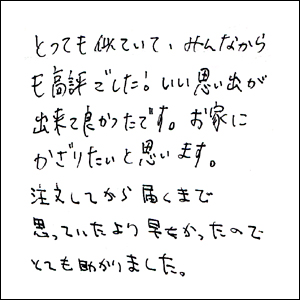 とっても似ていて、みんなから
も高評でした！いい思い出が
出来て良かったです。お家に
かざりたいと思います。
注文してから届くまで
思っていたより早かったので
とても助かりました。